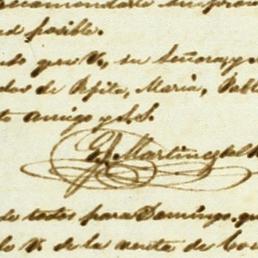 recomendarle su pron
ad posible.
do que V., su Señora, y
dos de Pepita, Maria, Pabl
to amigo y S.S.
E. Martinez del
de todos para Domingo. qu
lo V. de la venta de